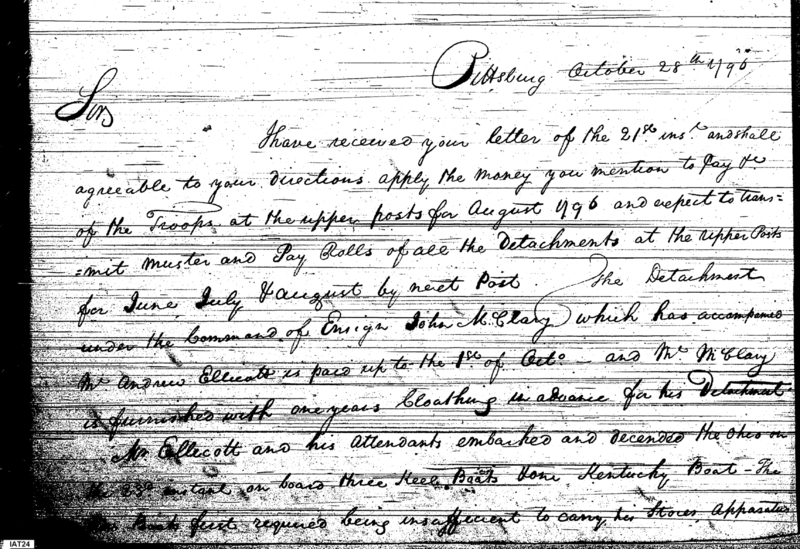 Pittsburg October 28th 1796
Sir
I have received your letter of the 21st inst. and shall
agreeable to your directions apply the money you mention to Pay &c
of the Troops at the upper posts for August 1796 and expect to trans=
=mit Muster and Pay Rolls of all the Detachments at the upper Posts
for June July & August by next Post. The Detachment
under the Command of Ensign John McClary which has accompanied
Mr Andrew Ellicott is paid up to the 1st of Octo. — and Mr McClary
is furnished with one years Cloathing in advance for his Detachment
Mr Ellecott and his Attendants embarked and decended the Ohio on
the 23d instant on board three Keel Boats & one Kentucky Boat — The
Boats first required being insufficient to carry his Stores Apparatus
IAT24